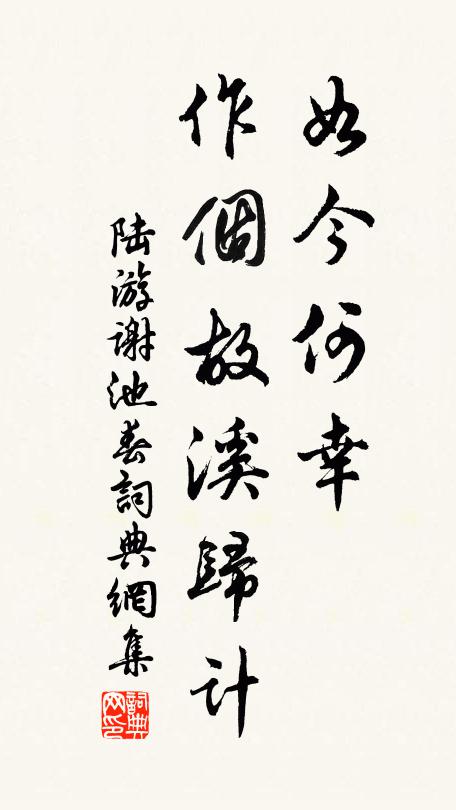 如今何幸
作個故溪歸計
陸游謝池春詞典網集
詞典网印